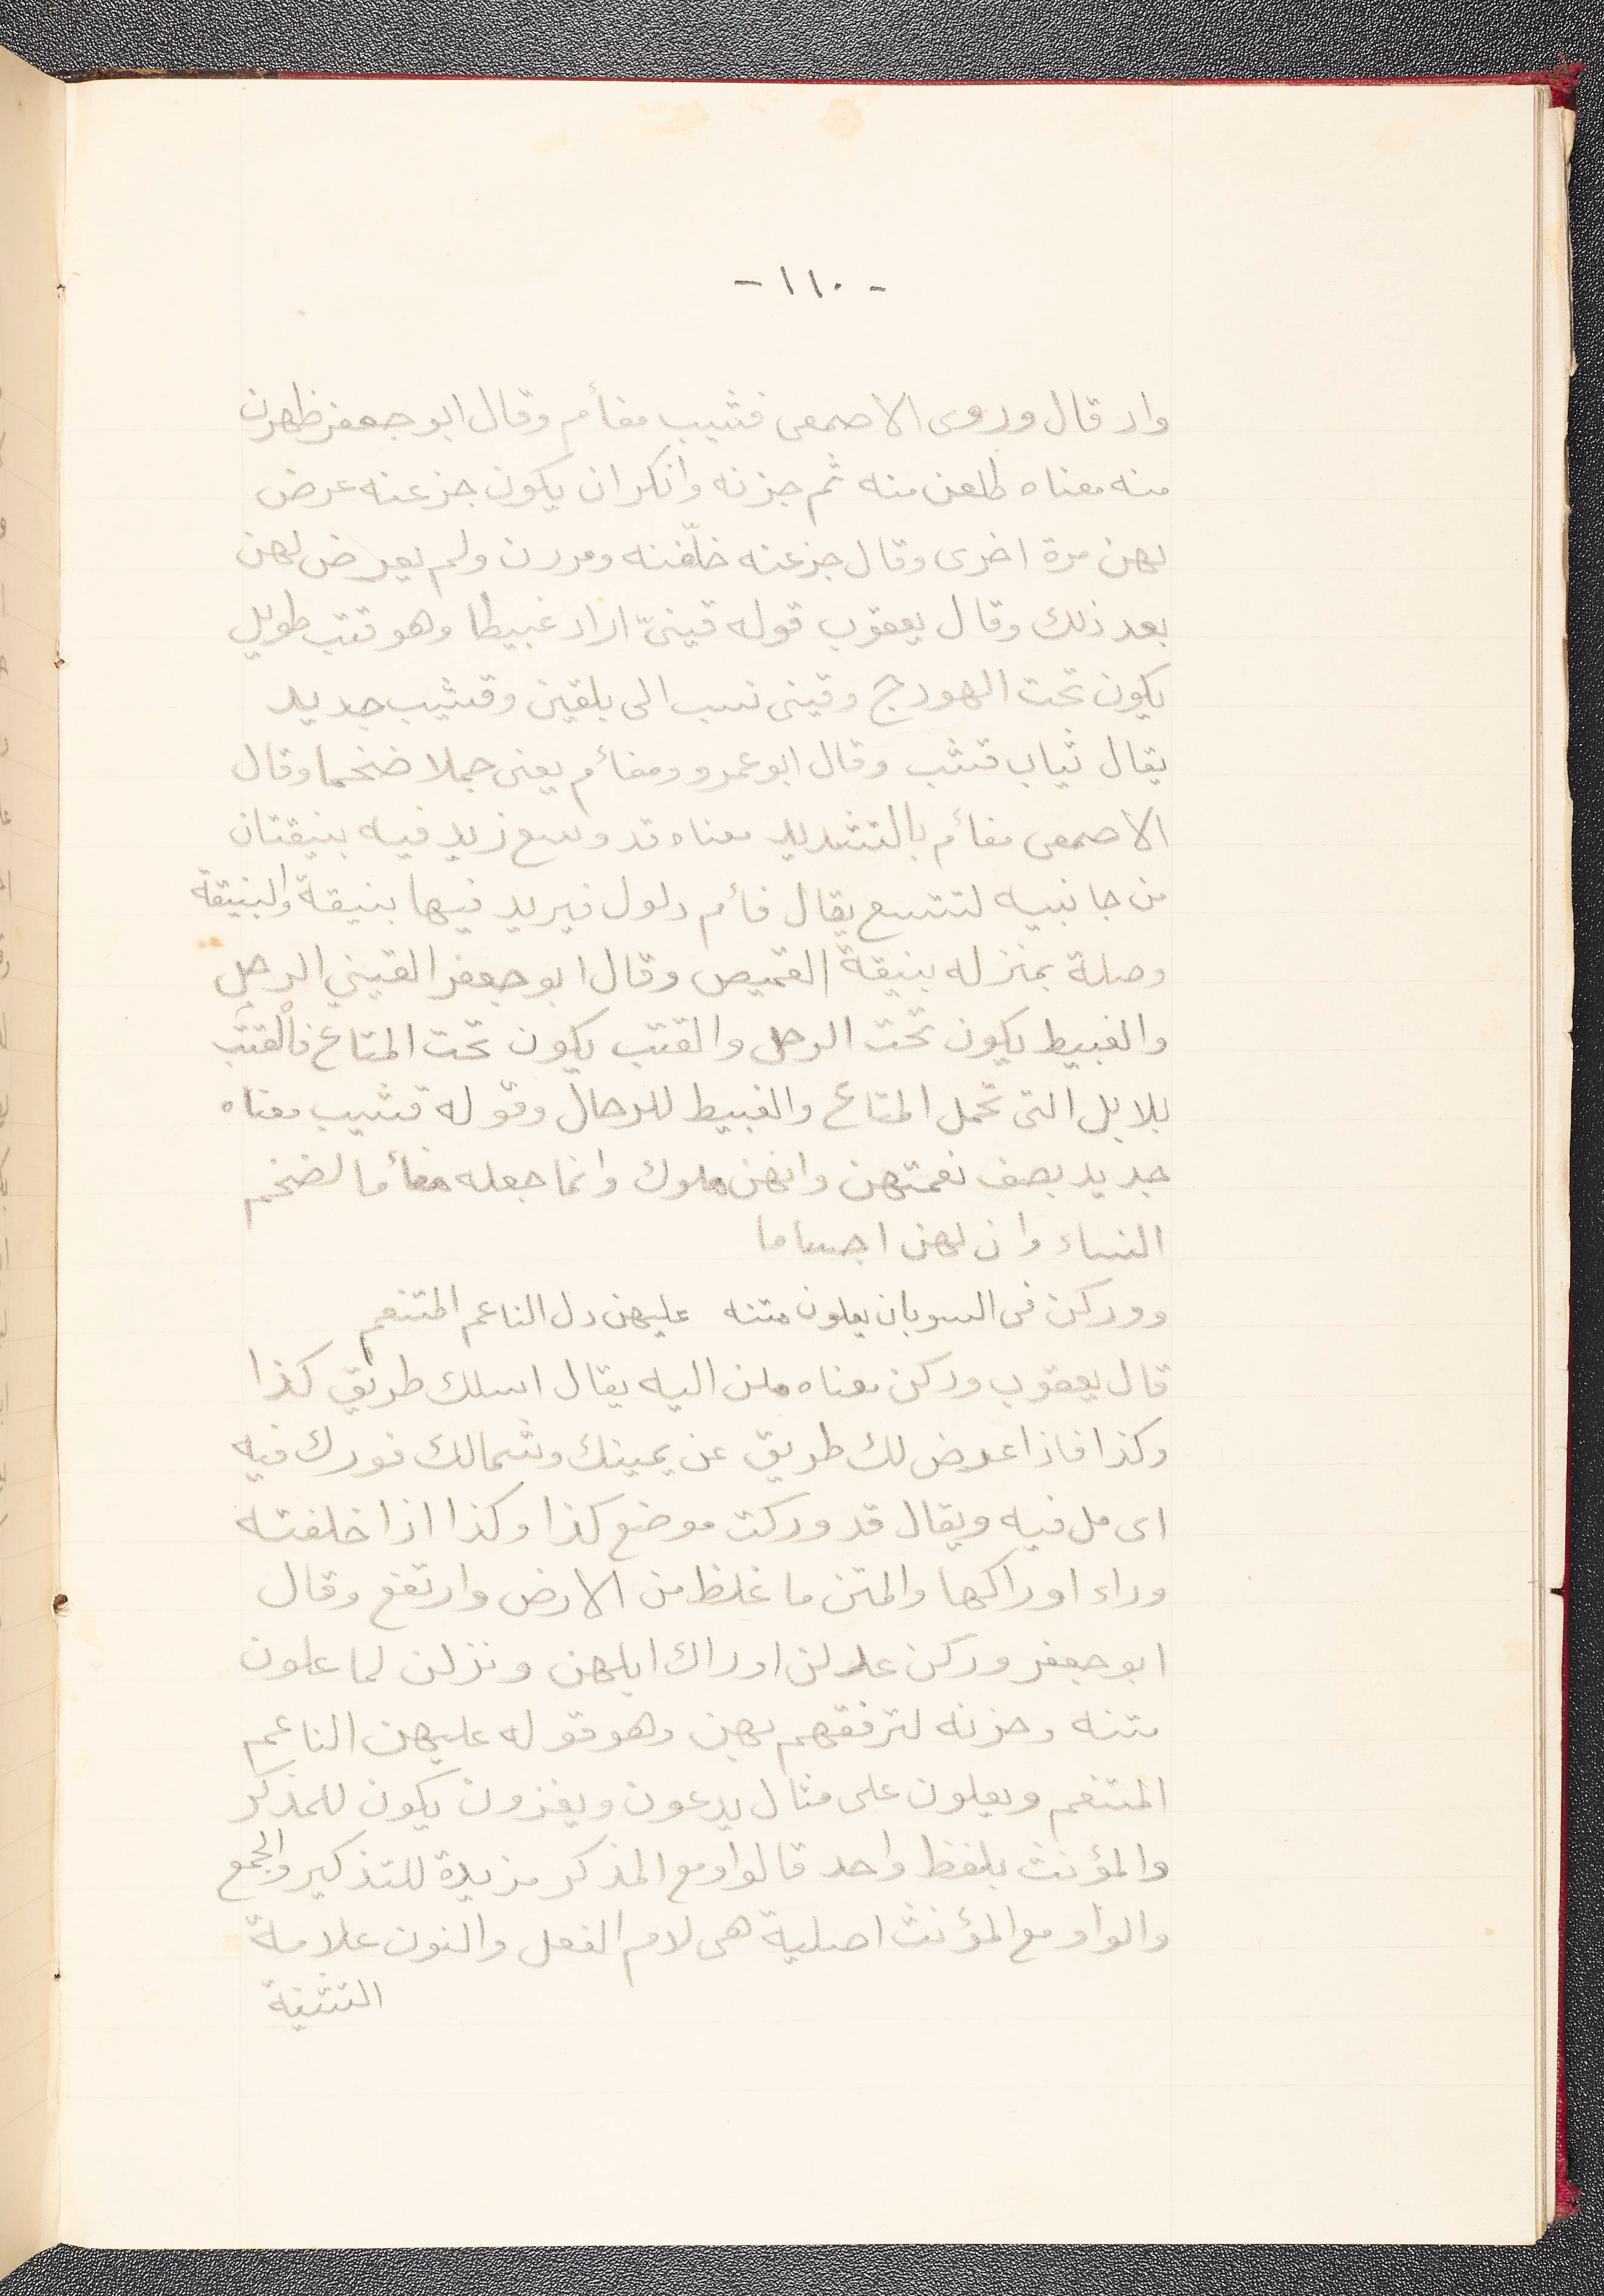 - ١١٠ -
واد قال وروى الاصمعى قشيب مفأم وقال ابو جعفر ظهرن
منه معناه طلعن منه ثم جزنه وانكر ان يكون جزعنه عرض
لهن مرة اخرى وقال جزعنه خلّفنه ومررن ولم يعرض لهن
بعد ذلك وقال يعقوب قوله قينىّ اراد غبيطا وهو قتب طويل
يكون تحت الهودج وقينى نسب الى بلقين وقشيب جديد
يقال ثياب قشب وقال ابو عمرو ومفأم يعنى جملا ضخما وقال
الاصمعى مفأم بالتشديد معناه قد وسع زيد فيه بنيقتان
من جانبيه لتتسع يقال فأم دلول فيريد فيها بنيقة والبنيقة
وصلة بمنزله بنيقة القميص وقال ابو جعفر القيني الرحل
والغبيط يكون تحت الرحل والقتب يكون تحت المتاع فالقتب
بلابل التى تحمل المتاع والغبيط للرحال وقوله قشيب معناه
جديد بصف نعمتهن وانهن ملوك وانما جعله مفأما لضخم
النساء وان لهن اجساما
ووركن فى السوبان يعلون متنه عليهن دل الناعم المتنعم
قال يعقوب وركن معناه ملن اليه يقال اسلك طريق كذا
وكذا فاذا عرض لك طريق عن يمينك وشمالك فورك فيه
اى مل فيه ويقال قد وركت موضع كذا وكذا اذا خلفته
وراء اوراكها والمتن ما غلظ من الارض وارتفع وقال
ابو جعفر وركن عدلن اوراك ابلهن ونزلن لما علون
متنه وحزنه لترفقهم بهن وهو قوله عليهن الناعم
المتنعم ويعلون على مثال يدعون ويغزون يكون للمذكر
والمؤنث بلفظ واحد قالوا ومع المذكر مزيدة للتذكير والجمع
والواو مع المؤنث اصلية هى لام الفعل والنون علامة
التثنية